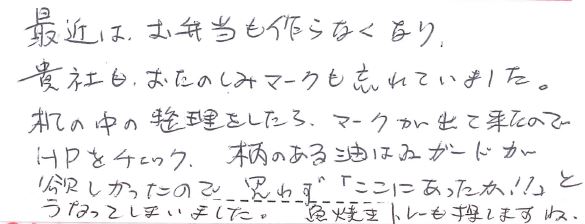 最近は、お弁当も作らなくなり、
貴社も、おたのしみマークも忘れていました。
机の中の整理をしたら、マークが出て来たので
HPをチェック、柄のある油はねガードが
欲しかったので、思わず「ここにあったか!!」と
うなってしまいました。魚焼きトレーも探しますね